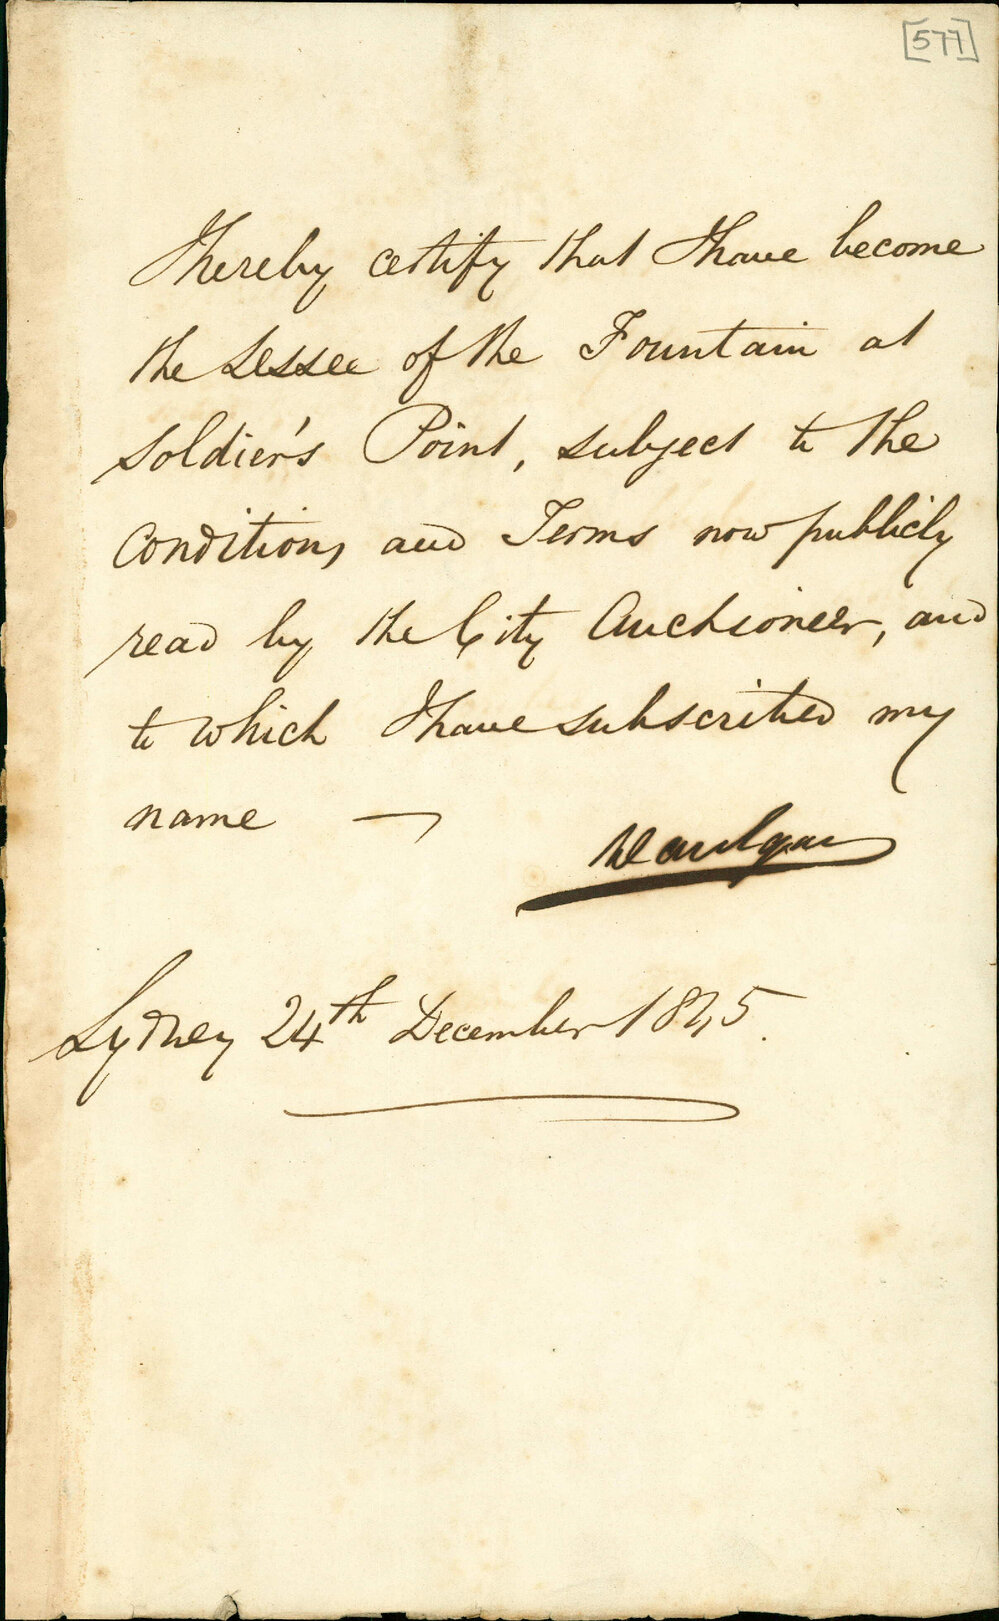 [577]
I hereby certify that I have become
the Lessee of the Fountain at
Soldier's Point, subject to the
Conditions and Terms now publicly
read by the City Auctioneer, and
to which I have subscribed my
name —
Sydney 24th December 1845.